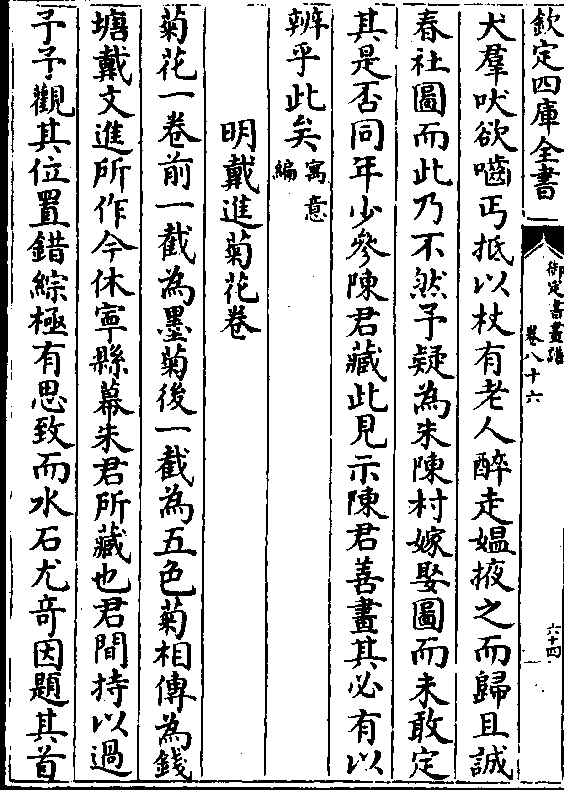 欽定四庫全書
御定書畫譜
卷八十六
六十四
犬羣吠欲嚙丐抵以杖有老人醉走媪掖之而歸且誠
春社圖而此乃不然予疑為朱陳村嫁娶圖而未敢定
其是否同年少參陳君藏此見示陳君善畫其必有以
辨乎此矣寓意編
明戴進菊花卷
菊花一卷前一截為墨菊後一截為五色菊相傳為錢
塘戴文進所作今休寧縣幕朱君所藏也君間持以過
予予觀其位置錯綜極有思致而水石尤竒因題其首